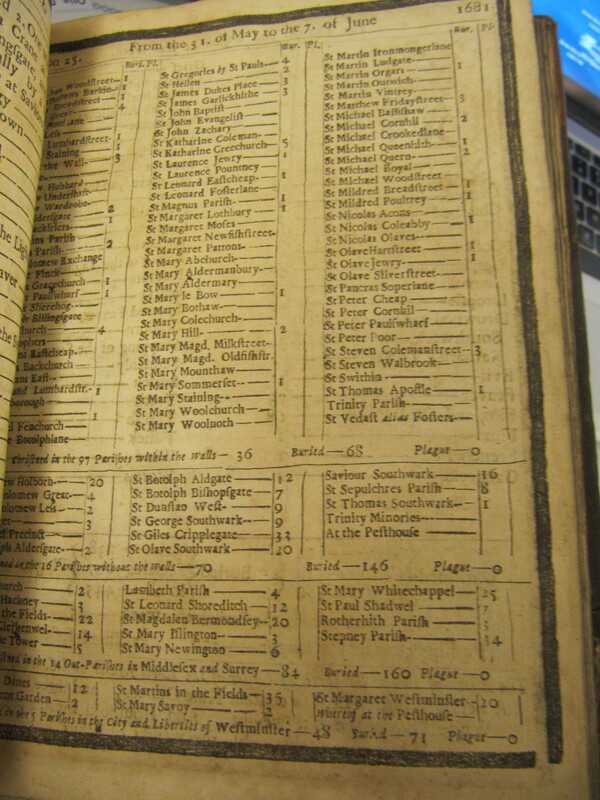 From the 31. of May to the 7. of June 1681.
Bur. Pl.
Woodstreet— 1
Barkin.— 1
Breadstreet— 1
4
Lumbardstreet— 1
Staining— 1
the Wall— 3
Hubbard
Undershaft
Wardrobe
Aldersgate— 2
Blackfriers— 1
Parish
Parish— 2
Exchange
Finck
Gracechurch— 1
Paulswharf— 1
Sherehog
Billingsgate
church— 4
Eastcheap
Backchurch
East
Lumbardstr.— 1
1
Fenchurch
Bur. Pl.
St Gregories by St Pauls— 4
St Hellen— 2
St James Dukes Place— 3
St James Garlickhithe— 3
St John Baptist
St John Evangelist
St John Zachary
St Katharine Coleman
St Katharine Creechurch— 5
St Laurence Jewry— 1
St Laurence Pountney
St Leonard Eastcheap— 1
St Leonard Fosterlane
St Magnus Parish— 1
St Margaret Lothbury— 1
St Margaret Moses
St Margaret Newfishstreet
St Margaret Pattons
St Mary Abchurch
St Mary Aldermanbury
St Mary Aldermary
St Mary le Bow— 1
St Mary Bothaw
St Mary Colechurch
St Mary Hill— 2
St Mary Magd. Milkstreet
St Mary Magd. Oldfishstr.
St Mary Mounthaw
St Mary Sommerset— 1
St Mary Staining
St Mary Woolchurch
St Mary Woolnoth
Bur. Pl.
St Martin Ironmongerlane
St Martin Ludgate— 1
St Martin Orgars— 1
St Martin Outwich
St Martin Vintrey
St Matthew Fridaystreet— 3
St Michael Bassishaw
St Michael Cornhill— 2
St Michael Crookedlane
St Michael Queenhith— 1
St Michael Quern— 2
St Michael Royal
St Michael Woodstreet
St Mildred Breadstreet— 1
St Mildred Poultrey— 1
St Nicolas Acons
St Nicolas Coleabby— 1
St Nicolas Olaves
St Olave Hartstreet— 1
St Olave Jewry— 1
St Olave Silverstreet
St Pancras Soperlane
St Peter Cheap
St Peter Cornhil
St Peter Paulswharf
St Peter Poor
St Steven Colemanstreet— 3
St Steven Walbrook
St Swithin
St Thomas Apostle— 1
Trinity Parish
St Vedast alias Fosters
Christned in the 97 Parishes within the Walls— 36 Buried— 68 Plague— 0
Holborn— 20
Great— 4
Less— 2
3
Precinct
Aldersgate— 2
St Botolph Aldgate— 12
St Botolph Bishopsgate— 7
St Dunstan West— 9
St George Southwark— 9
St Giles Cripplegate— 33
St Olave Southwark— 20
Saviour Southwark— 16
St Sepulchres Parish— 8
St Thomas Southwark— 1
Trinity Minories
At the Pesthouse
in the 16 Parishes without the Walls— 70 Buried— 146 Plague— 0
church— 2
Hackney— 3
the Fields— 22
Clerkenwel— 14
the Tower— 5
Lambeth Parish— 4
St Leonard Shoreditch— 12
St Magdalen Bermondsey— 20
St Mary Islington— 3
St Mary Newington— 6
St Mary Whitechappel— 25
St Paul Shadwel
Rotherhith Parish
Stepney Parish— 34
in the 14 Out-Parishes in Middlesex and Surrey— 84 Buried— 160 Plague— 0
Danes— 12
Garden— 2
St Martins in the Fields— 35
St Mary Savoy— 2
St Margaret Westminster— 20
Whereof at the Pesthouse
in the 5 Parishes in the City and Liberties of Westminster— 48 Buried— 71 Plague— 0